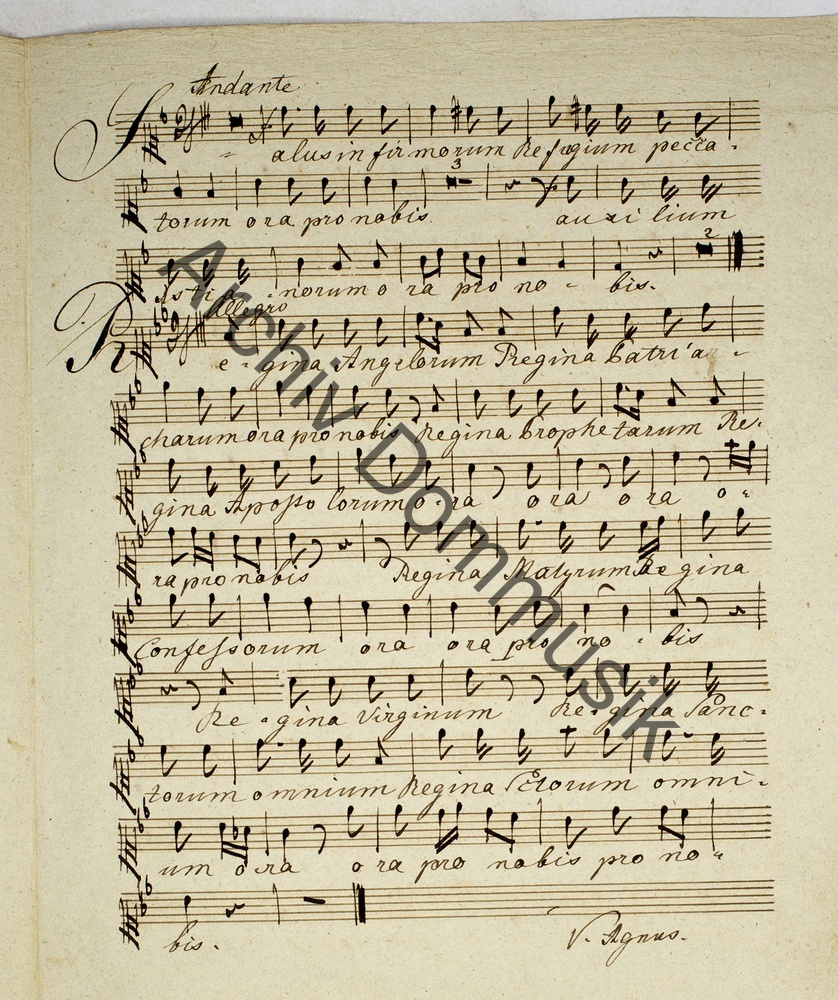 Andante
Salus infirmorum Refugium pecca-
3
torum ora pro nobis. auxilium
2
istia-norum ora pro no-bis.
Allegro
Re-gina Angelorum Regina Patria-
charum ora pro nobis Regina Prophetarum Re-
gina Apostolorum ora ora ora o-
ra pro nobis Regina Matyrum Regina
Confessorum ora ora pro no-bis
Re-gina Virginum Re-gina Sanc-
torum omnium Regina SCtorum omni-
um ora ora pro nobis pro no-
bis. V. Agnus.
Archiv Dommusik